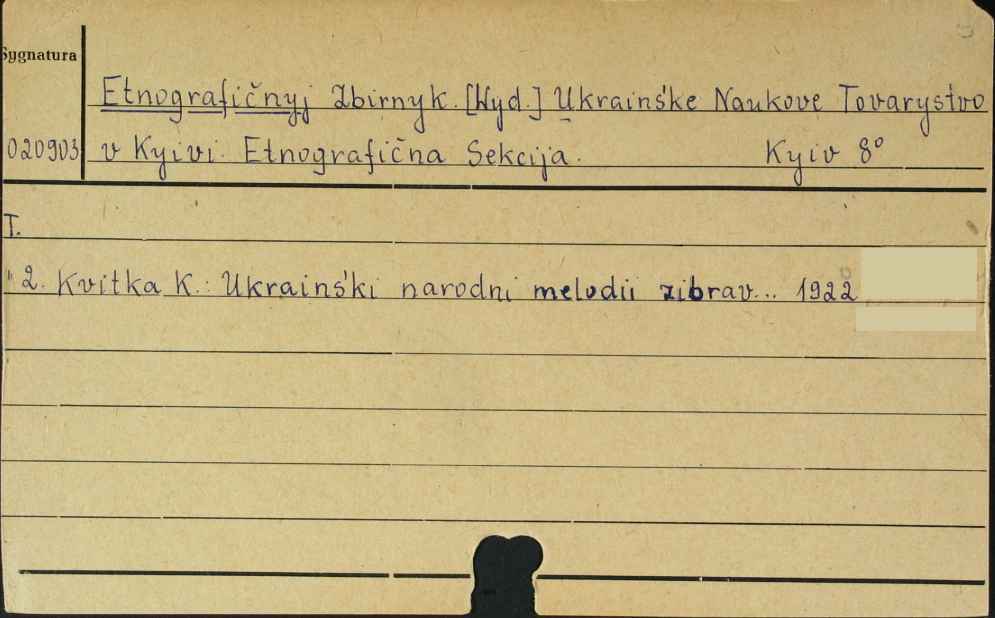 Sygnatura
Etnografičnyj Zbirnyk. [Wyd.] Ukraińśke Naukove Tovarystvo
020903 v Kyjivi. Etnografična Sekcija. Kyiv 8°
T.
" 2. Kvitka K.: Ukraińśki narodni melodii zibrav... 1922